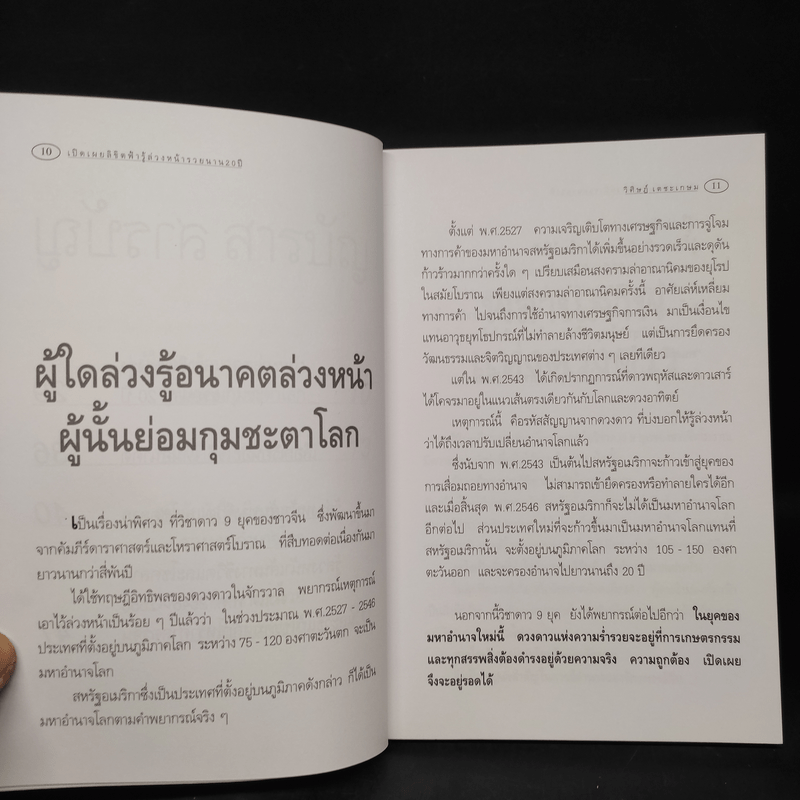 10 เปิดเผยลิขิตฟ้ารู้ล่วงหน้ารวยนาน20ปี
ผู้ใดล่วงรู้อนาคตล่วงหน้า
ผู้นั้นย่อมกุมชะตาโลก
เป็นเรื่องน่าพิศวง ที่วิชาดาว 9 ยุคของชาวจีน ซึ่งพัฒนาขึ้นมา
จากคัมภีร์ดาราศาสตร์และโหราศาสตร์โบราณ ที่สืบทอดต่อเนื่องกันมา
ยาวนานกว่าสี่พันปี
ได้ใช้ทฤษฎีอิทธิพลของดวงดาวในจักรวาล พยากรณ์เหตุการณ์
เอาไว้ล่วงหน้าเป็นร้อย ๆ ปีแล้วว่า ในช่วงประมาณ พ.ศ.2527 - 2546
ประเทศที่ตั้งอยู่บนภูมิภาคโลก ระหว่าง 75 - 120 องศาตะวันตก จะเป็น
มหาอำนาจโลก
สหรัฐอเมริกาซึ่งเป็นประเทศที่ตั้งอยู่บนภูมิภาคดังกล่าว ก็ได้เป็น
มหาอำนาจโลกตามคำพยากรณ์จริง ๆ
วิศิษฎ์ เตชะเกษม 11
ตั้งแต่ พ.ศ.2527 ความเจริญเติบโตทางเศรษฐกิจและการจู่โจม
ทางการค้าของมหาอำนาจสหรัฐอเมริกาได้เพิ่มขึ้นอย่างรวดเร็วและดุดัน
ก้าวร้าวมากกว่าครั้งใด ๆ เปรียบเสมือนสงครามล่าอาณานิคมของยุโรป
ในสมัยโบราณ เพียงแต่สงครามล่าอาณานิคมครั้งนี้ อาศัยเล่ห์เหลี่ยม
ทางการค้า ไปจนถึงการใช้อำนาจทางเศรษฐกิจการเงิน มาเป็นเงื่อนไข
แทนอาวุธยุทโธปกรณ์ที่ไม่ทำลายล้างชีวิตมนุษย์ แต่เป็นการยึดครอง
วัฒนธรรมและจิตวิญญาณของประเทศต่าง ๆ เลยทีเดียว
แต่ใน พ.ศ.2543 ได้เกิดปรากฏการณ์ที่ดาวพฤหัสและดาวเสาร์
ได้โคจรมาอยู่ในแนวเส้นตรงเดียวกันกับโลกและดวงอาทิตย์
เหตุการณ์นี้ คือรหัสสัญญานจากดวงดาว ที่บ่งบอกให้รู้ล่วงหน้า
ว่าได้ถึงเวลาปรับเปลี่ยนอำนาจโลกแล้ว
ซึ่งนับจาก พ.ศ.2543 เป็นต้นไปสหรัฐอเมริกาจะก้าวเข้าสู่ยุคของ
การเสื่อมถอยทางอำนาจ ไม่สามารถเข้ายึดครองหรือทำลายใครได้อีก
และเมื่อสิ้นสุด พ.ศ.2546 สหรัฐอเมริกาก็จะไม่ได้เป็นมหาอำนาจโลก
อีกต่อไป ส่วนประเทศใหม่ที่จะก้าวขึ้นมาเป็นมหาอำนาจโลกแทนที่
สหรัฐอเมริกานั้น จะตั้งอยู่บนภูมิภาคโลก ระหว่าง 105 - 150 องศา
ตะวันออก และจะครองอำนาจไปยาวนานถึง 20 ปี
นอกจากนี้วิชาดาว 9 ยุค ยังได้พยากรณ์ต่อไปอีกว่า ในยุคของ
มหาอำนาจใหม่นี้ ดวงดาวแห่งความร่ำรวยจะอยู่ที่การเกษตรกรรม
และทุกสรรพสิ่งต้องดำรงอยู่ด้วยความจริง ความถูกต้อง เปิดเผย
จึงจะอยู่รอดได้